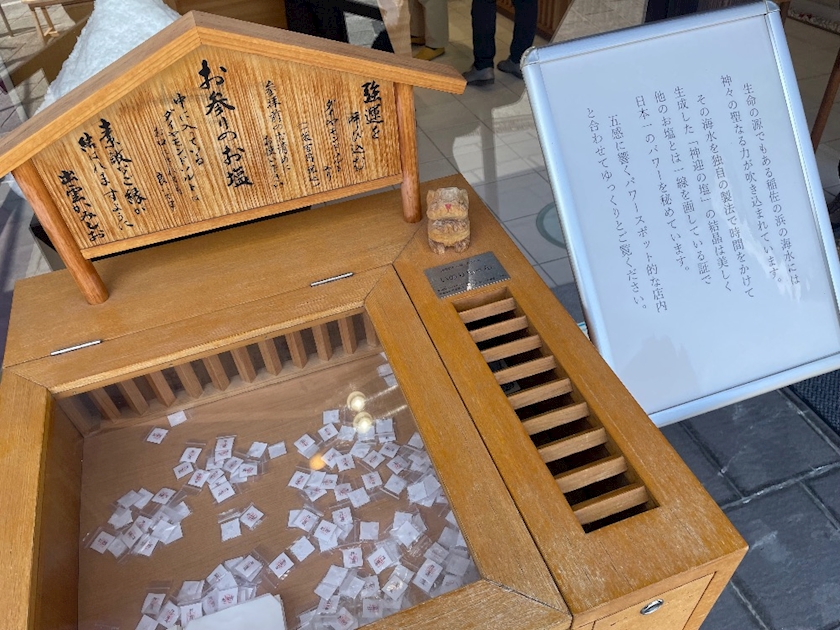 強運を
呼び込む
お参りのお塩
中に入っている
素敵なご縁が
結ばれますように
生命の源でもある稲佐の浜の海水には
神々の聖なる力が吹き込まれています。
その海水を独自の製法で時間をかけて
生成した「神迎の塩」の結晶は美しく
他のお塩とは一線を画している証で
日本一のパワーを秘めています。
五感に響くパワースポット的な店内
と合わせてゆっくりとご覧ください。